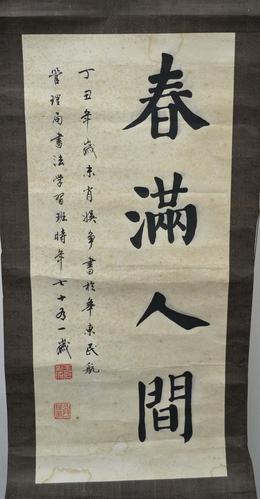 春滿人間
丁丑年歲末肖媖争書於華東民航
管理局書法学習班時年七十有一歲